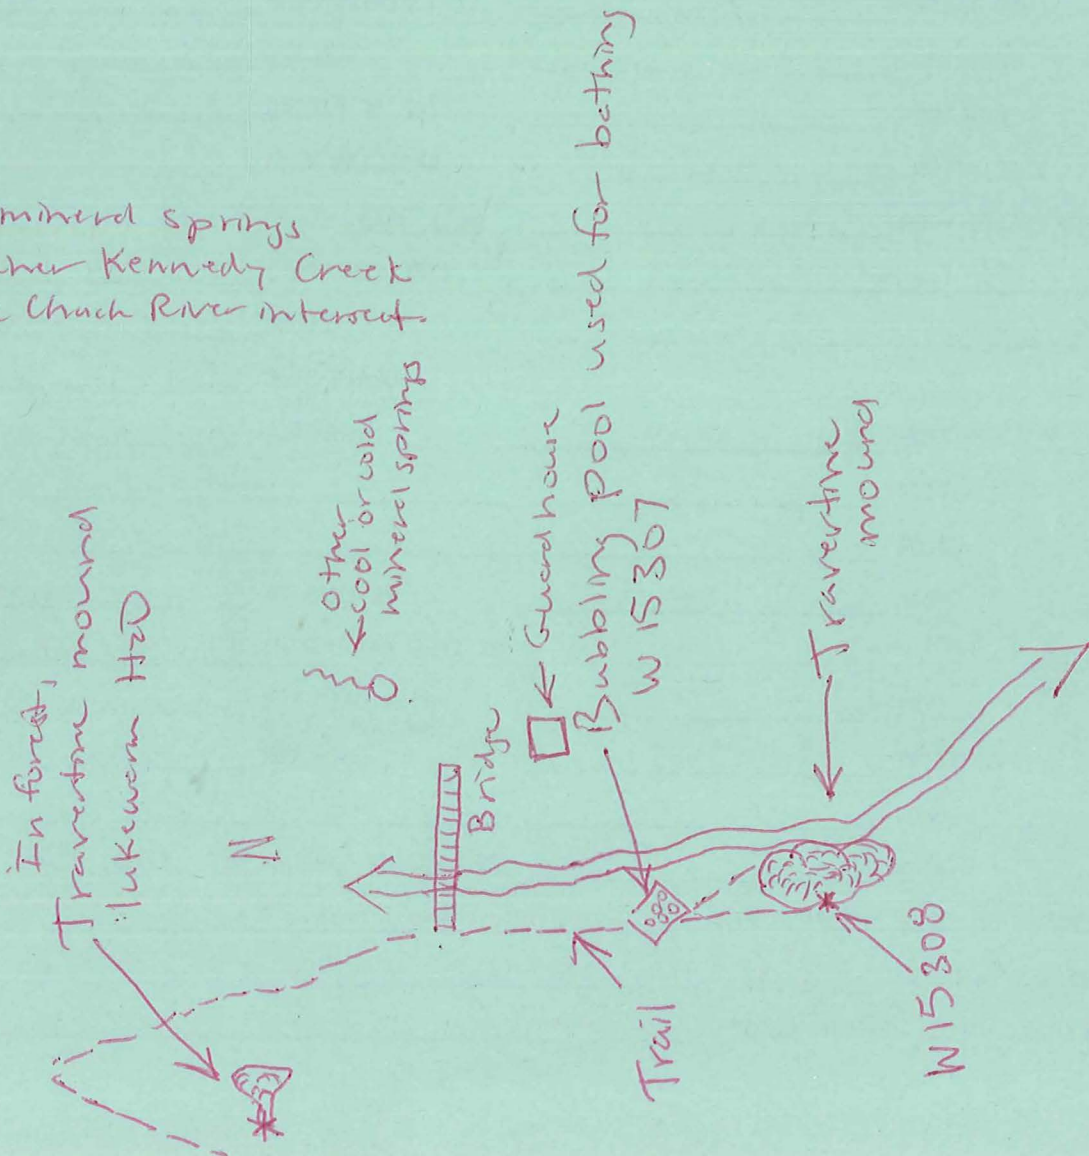 mineral springs
Kennedy Creek
Chuch River intersect.
In forest,
Travertine mound
lukewarm H2O
N
other
cool or cold
mineral springs
Bridge
Guardhouse
Bubbling pool used for bathing
W15307
Trail
Travertine
mound
W15308